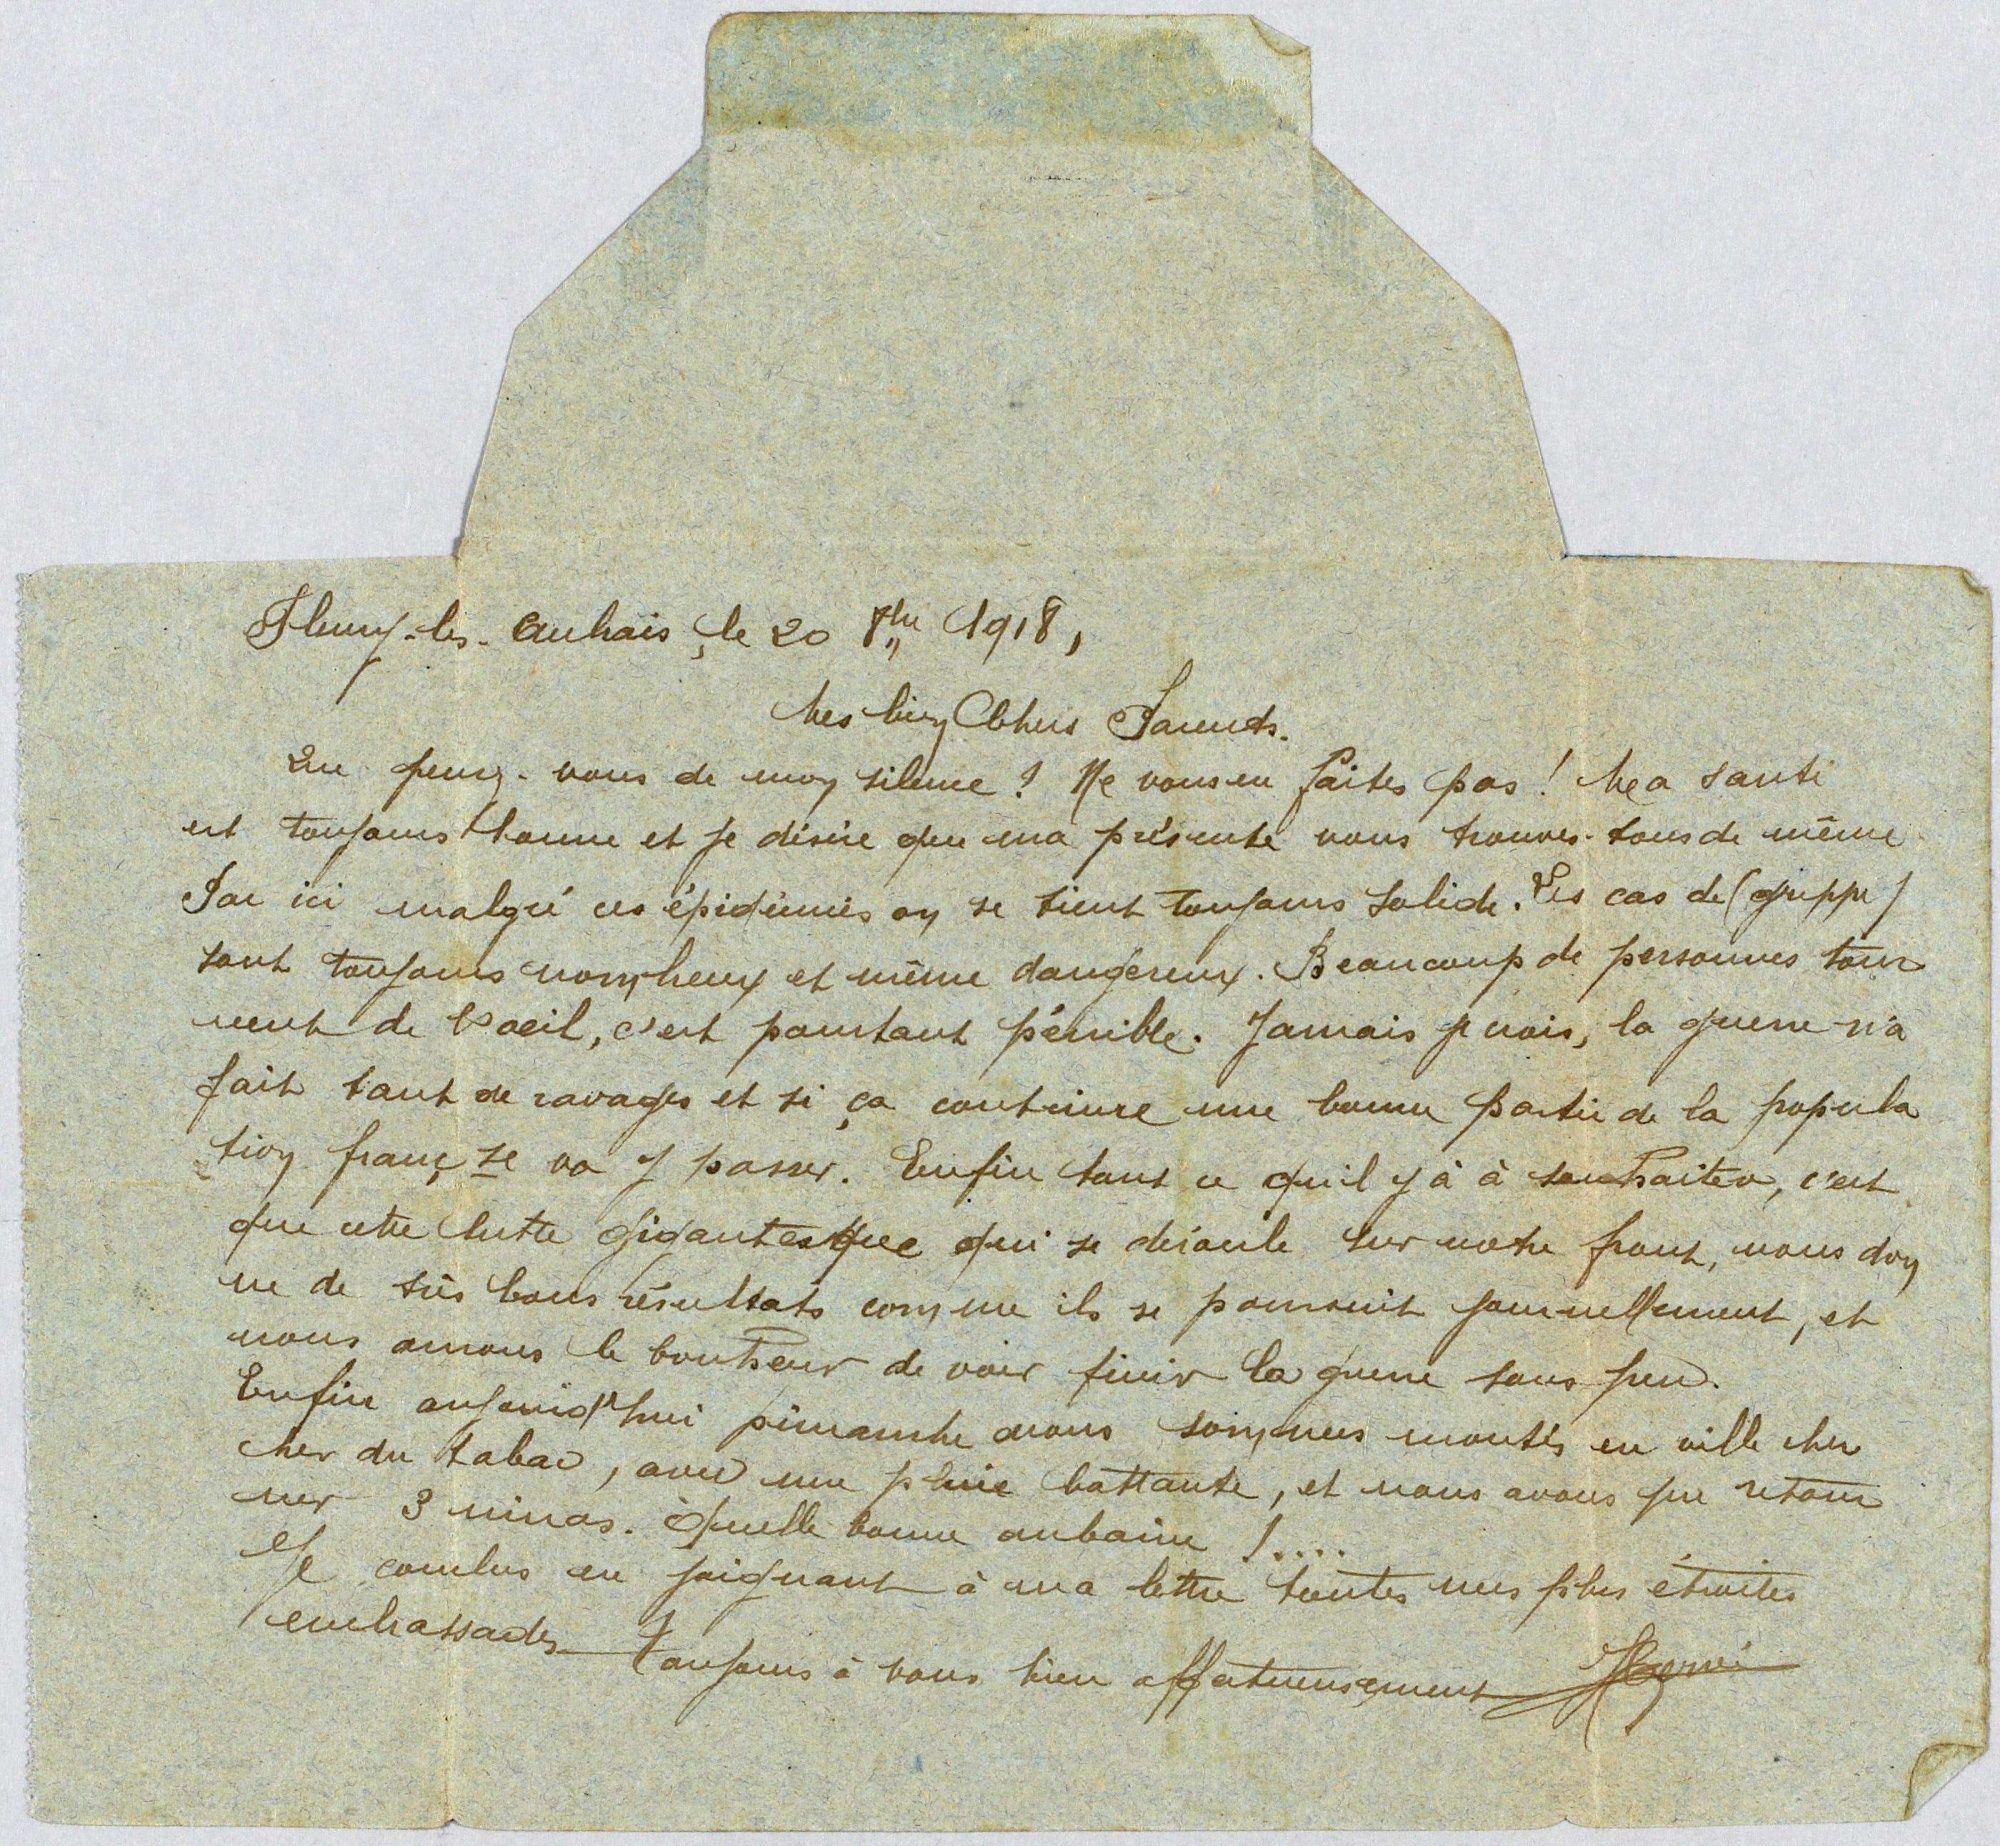 Fleury-les-Aubrais, le 20 8bre 1918,
Mes bien Chers Parents.
Que pensez-vous de mon silence ? Ne vous en faites pas ! Ma santé
est toujours bonne et je désire que ma présente vous trouves tous de même
Par ici malgré ces épidémies on se tient toujours solide. Les cas de (grippe)
sont toujours nombreux et même dangereux. Beaucoup de personnes tour
nent de l'oeil, c'est pourtant pénible. Jamais je crois, la guerre n'a
fait tant de ravages et si ça continue une bonne partie de la popula
tion franç se va y passer. Enfin tout ce qu'il y à à souhaiter, c'est
que cette lutte gigantesque qui se déroule sur notre front, nous don
ne de très bons résultats comme ils se poursuit journellement, et
nous aurons le bonheur de voir finir la guerre sous peu.
Enfin aujourid'hui dimanche nous sommes montés en ville cher
cher du tabac, avec une pluie battante, et nous avons pu retour
ner 3 ninas. Quelle bonne aubaine !....
Je conclus en joignant à ma lettre toutes mes plus étroites
embrassades Toujours à vous bien affectueusement